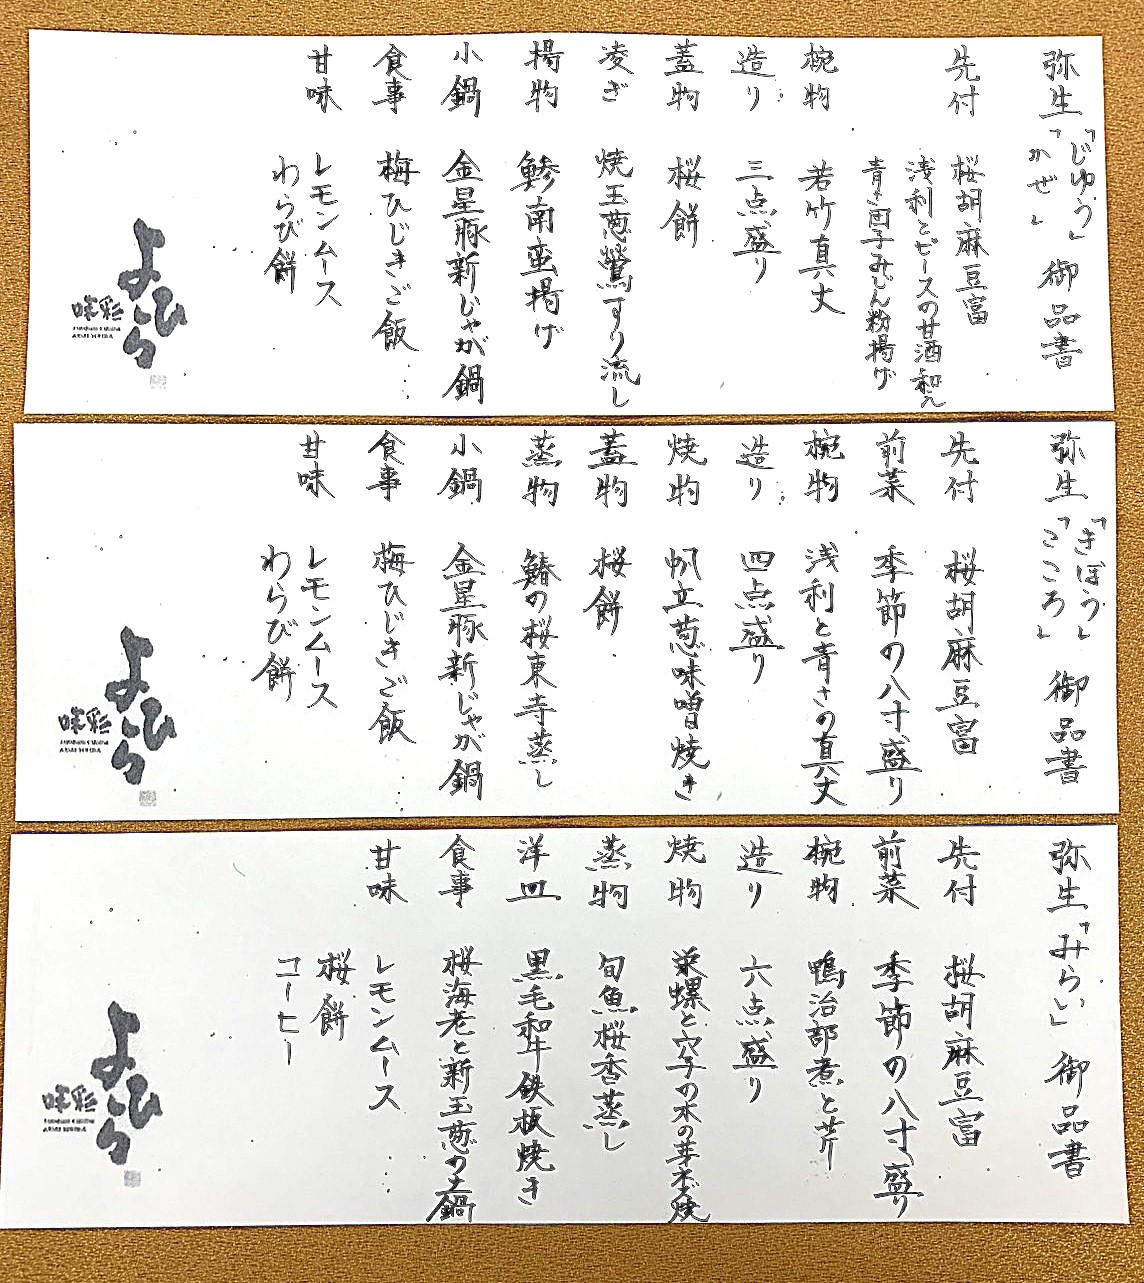 弥生「じゆう」
「かぜ」 御品書
先付 桜胡麻豆富
浅利とピースの甘酒和え
青さ団子みじん粉揚げ
椀物 若竹真丈
造り 三点盛り
蓋物 桜餅
凌ぎ 焼玉葱鶯すり流し
揚物 鯵南蛮揚げ
小鍋 金星豚新じゃが鍋
食事 梅ひじきご飯
甘味 レモンムース
わらび餅
よひら
彩和味
弥生「きぼう」
「こころ」 御品書
先付 桜胡麻豆富
前菜 季節の八寸盛り
椀物 浅利と青さの真丈
造り 四点盛り
焼物 帆立葱味噌焼き
蓋物 桜餅
蒸物 鰆の桜東寺蒸し
小鍋 金星豚新じゃが鍋
食事 梅ひじきご飯
甘味 レモンムース
わらび餅
よひら
彩和味
弥生「みらい」 御品書
先付 桜胡麻豆富
前菜 季節の八寸盛り
椀物 鴨治部煮と芹
造り 六点盛り
焼物 栄螺と穴子の木の芽焼
蒸物 旬魚桜香蒸し
洋皿 黒毛和牛鉄板焼き
食事 桜海老と新玉葱の土鍋
甘味 レモンムース
桜餅
コーヒー
よひら
彩和味